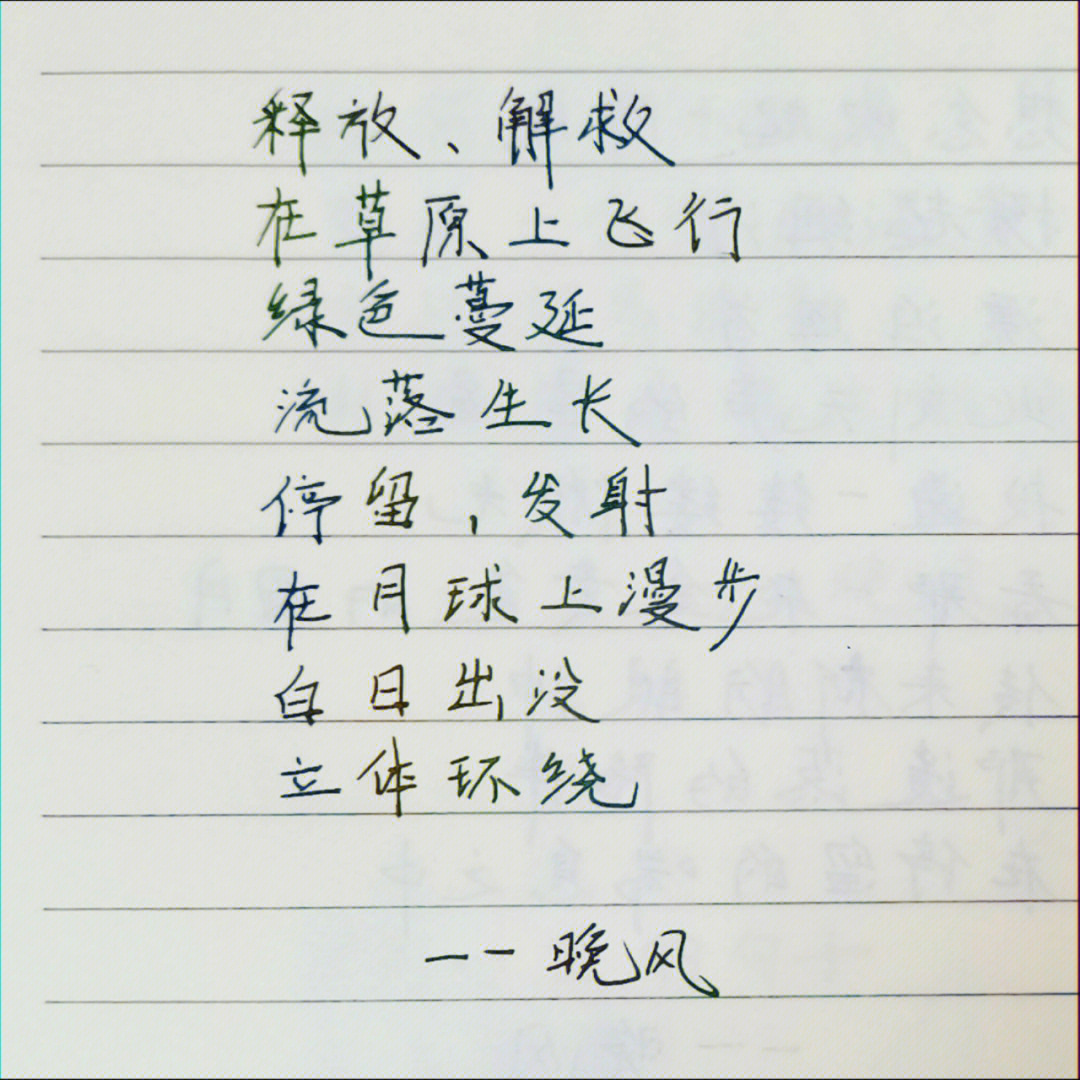 释放、解救
在草原上飞行
绿色蔓延
流落生长
停留,发射
在月球上漫步
白日出没
立体环绕
——晚风